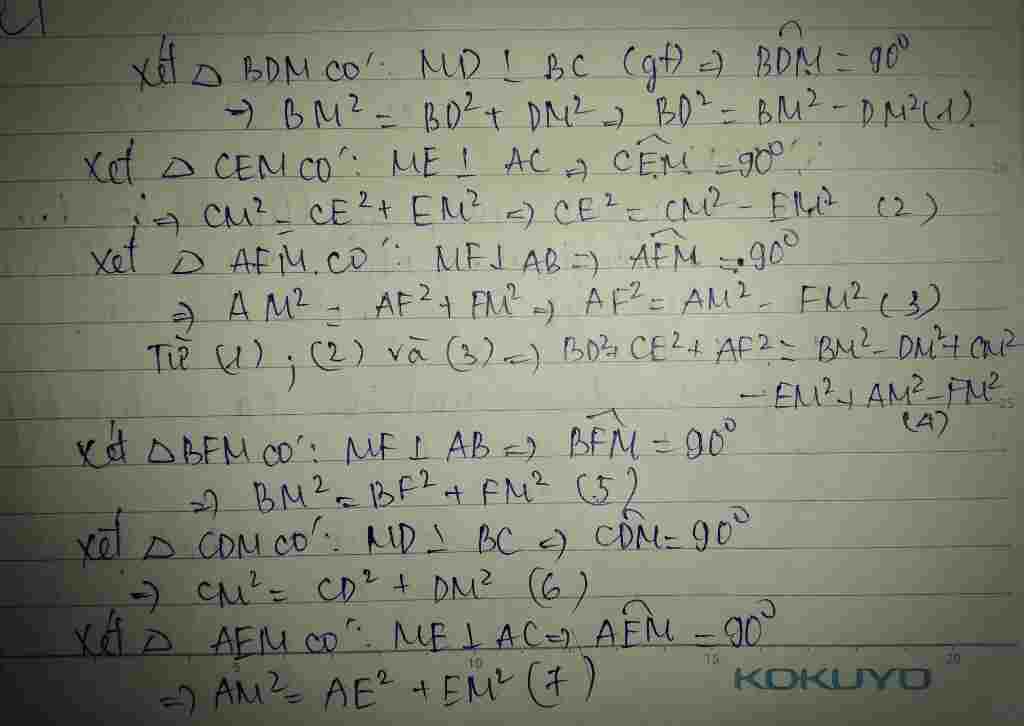 Xét △ BDM có: MD ⊥ BC (gt) ⇒ BDM = 90⁰
⇒ BM² = BD² + DM² ⇒ BD² = BM² - DM² (1).
Xét △ CEM có: ME ⊥ AC ⇒ CEM = 90⁰
⇒ CM² = CE² + EM² ⇒ CE² = CM² - EM² (2)
Xét △ AFM có: MF ⊥ AB ⇒ AFM = 90⁰
⇒ AM² = AF² + FM² ⇒ AF² = AM² - FM² (3)
Từ (1); (2) và (3) ⇒ BD² + CE² + AF² = BM² - DM² + CM²
- EM² + AM² - FM²
(4)
Xét △ BFM có: MF ⊥ AB ⇒ BFM = 90⁰
⇒ BM² = BF² + FM² (5)
Xét △ CDM có: MD ⊥ BC ⇒ CDM = 90⁰
⇒ CM² = CD² + DM² (6)
Xét △ AEM có: ME ⊥ AC ⇒ AEM = 90⁰
⇒ AM² = AE² + EM² (7)
10 15 20
KOKUYO